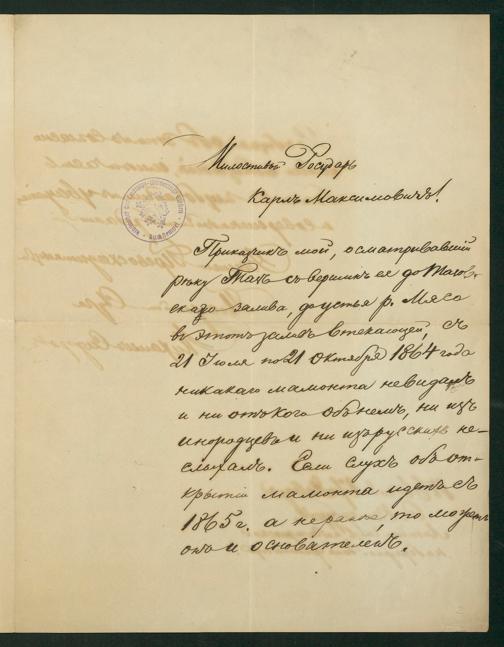 Милостивый Государь
Карлъ Максимовичъ!
Прикащикъ мой, осматривавшій
рѣку Тазъ съ вершинъ ее до Тазов-
скаго залива, до устья р. Мяса
въ этотъ заливъ втекающей, съ
21 Іюля по 21 Октября 1864 года
никакаго мамонта невидалъ
и ни отъ кого объ немъ, ни изъ
инородцевъ и ни изъ русскихъ не-
слыхалъ. Если слухъ объ от-
крытіи мамонта идетъ съ
1865 г. а не ранѣе, то можетъ
онъ и основателенъ.